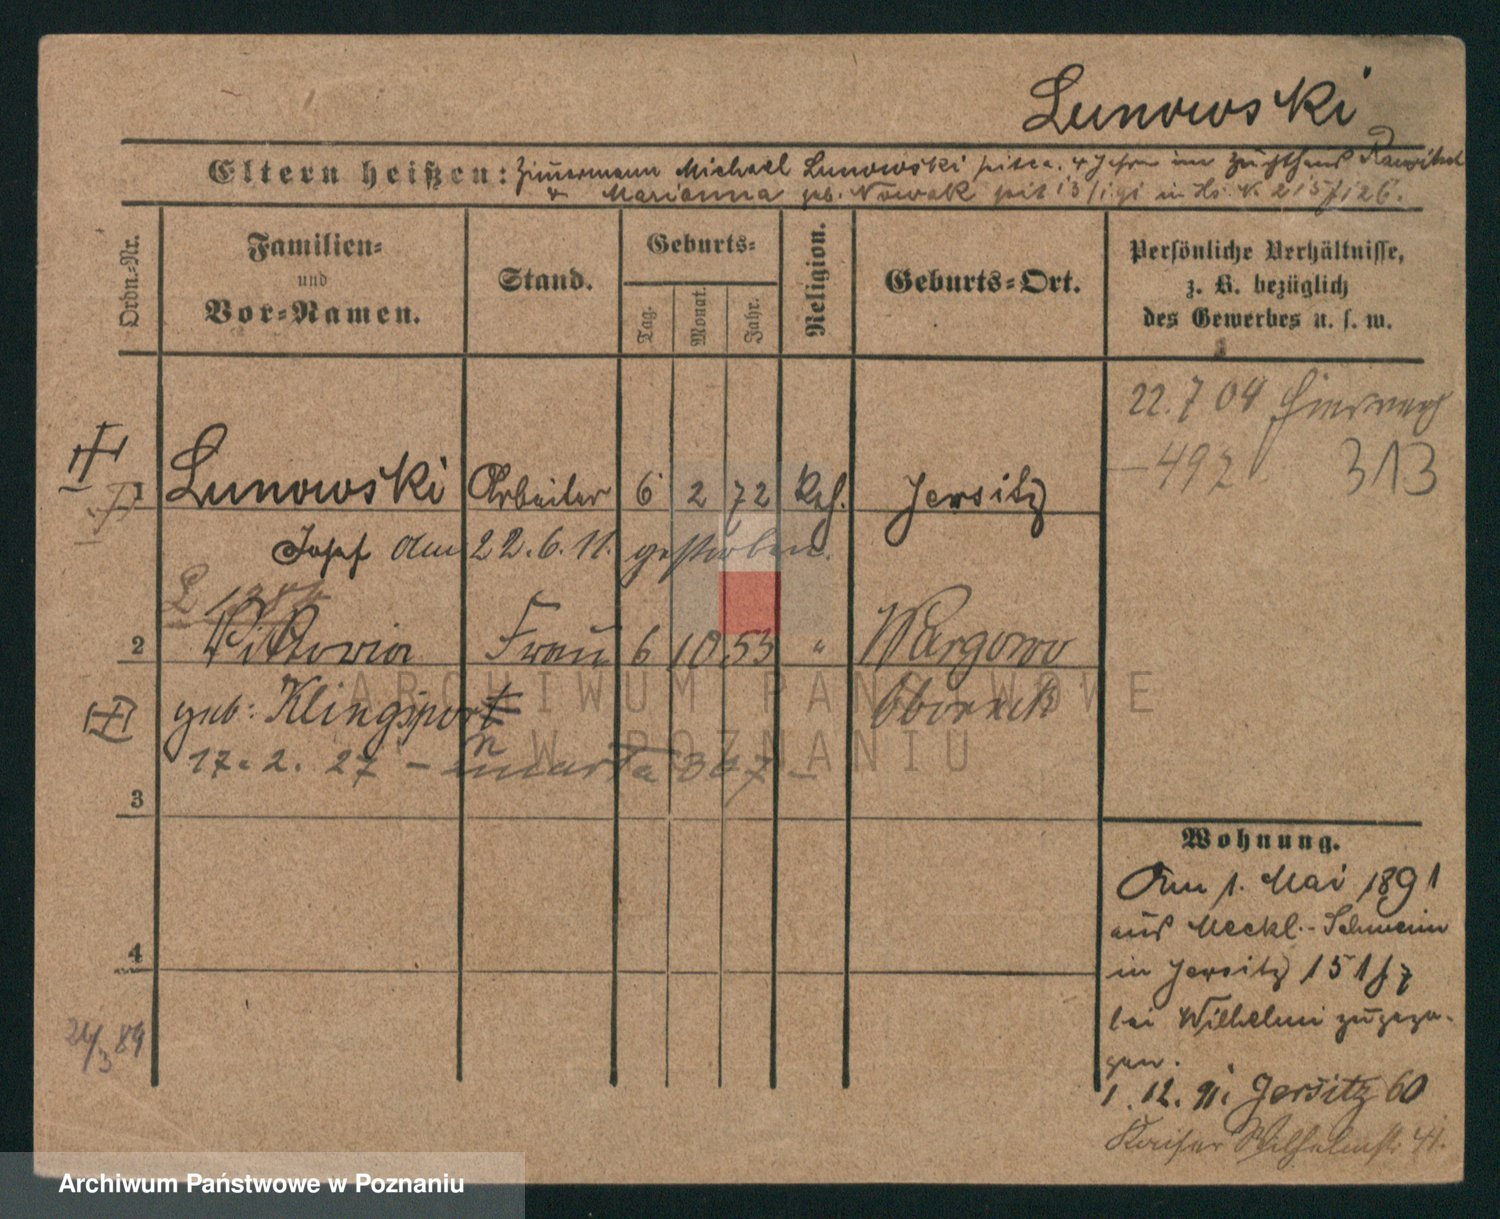 Lunowski
Eltern heißen: Zimmermann Michael Lunowski seit ca. 4 Jahren im Zuchthaus Rawitsch
u. Marianna geb. Nowak seit 13/1 91 in
Ordn.-Nr.
Familien-
und
Vor-Namen.
Stand.
Geburts-
Tag.
Monat.
Jahr.
Religion.
Geburts-Ort.
Persönliche Verhältnisse,
z. B. bezüglich
des Gewerbes u. s. w.
22. 7 04
-492 313
1 Lunowski Arbeiter 6 2 72 Kath. Jersitz
Josef am 22.6.11. gestorben.
2 Viktoria Frau 6 10 53 " Wargowo
geb. Klingsport Obornik
17. 2. 27 -
3
4
24/3 89
Wohnung.
Am 1. Mai 1891
aus Meckl.-Schwerin
in Jersitz 151 f 7
bei Wilhelmi zugezo-
gen.
1. 12. 91. Jersitz 60
Kaiser Wilhelmstr. 41.
ARCHIWUM PAŃSTWOWE
W POZNANIU
Archiwum Państwowe w Poznaniu